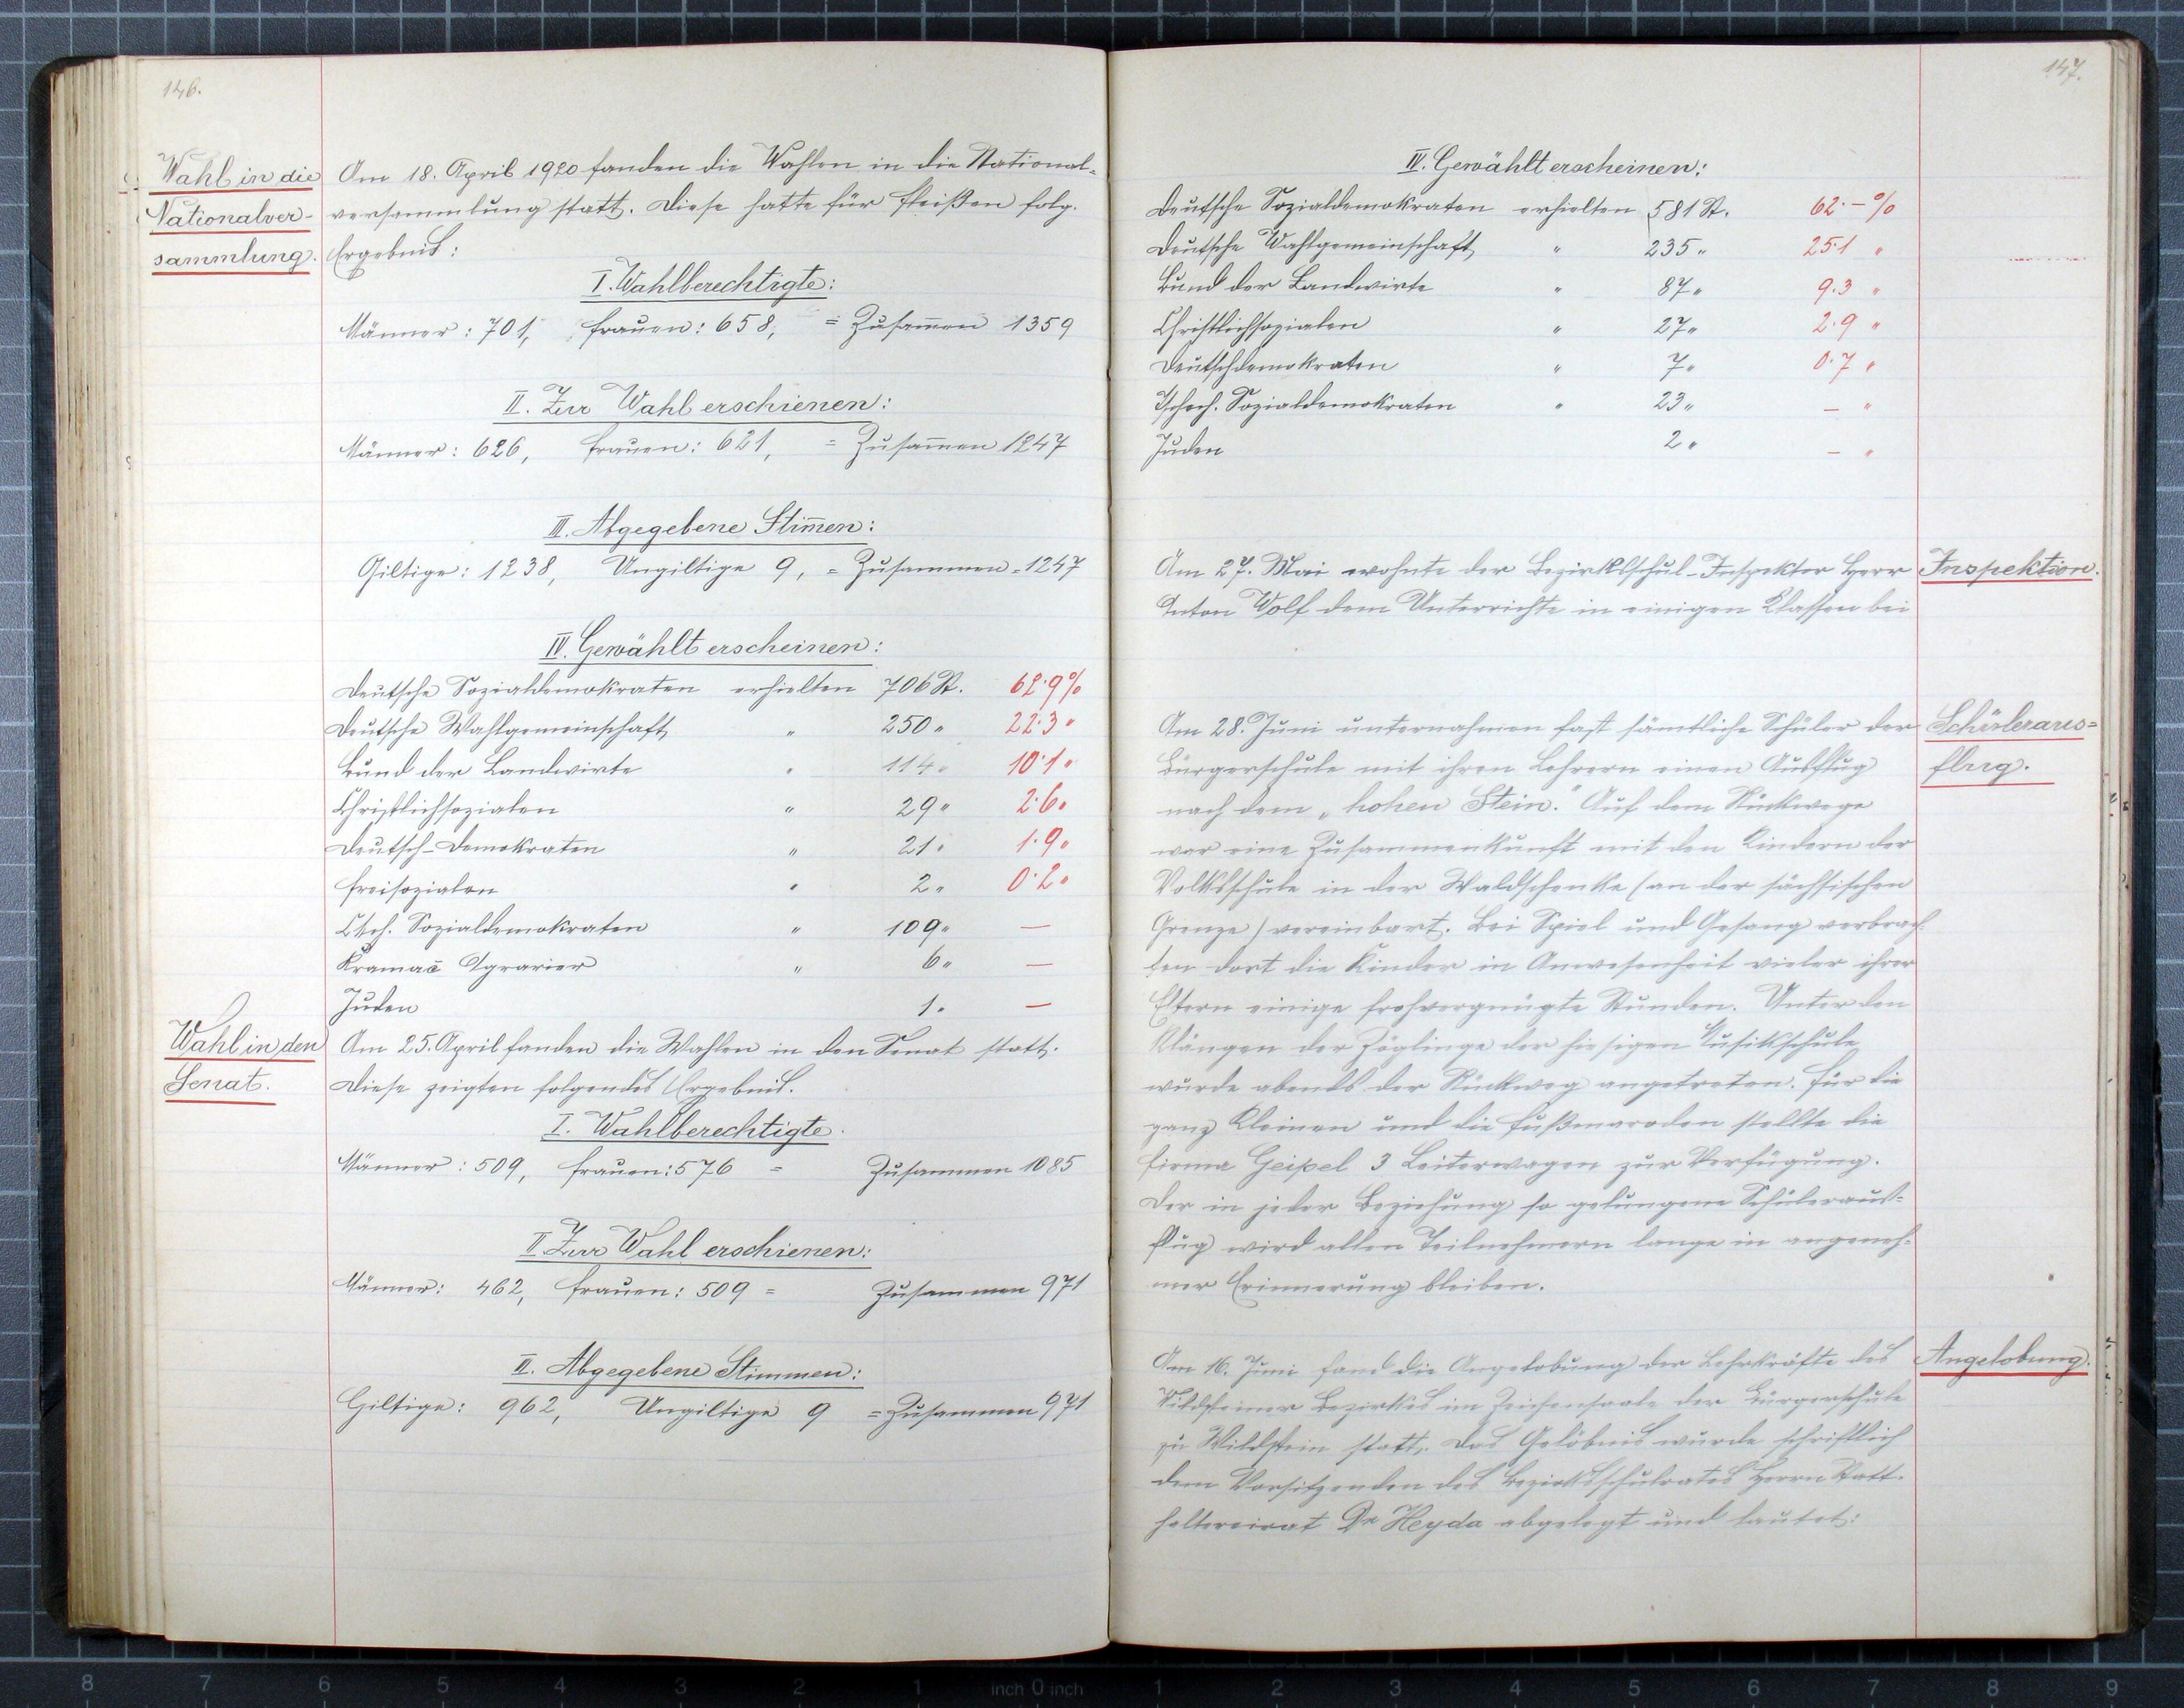 146.
Wahl in die
Nationalver-
sammlung.
Am 18. April 1920 fanden die Wahlen in die National-
versammlung statt. Diese hatte für Fleißen folg.
Ergebnis:
I. Wahlberechtigte:
Männer: 701, Frauen: 658, = Zusam̄en 1359
II. Zur Wahl erschienen:
Männer: 626, Frauen: 621, = Zusam̄en 1247
III. Abgegebene Stim̄en:
Giltige: 1238, Ungiltige 9, = Zusammen = 1247
IV. Gewählt erscheinen:
Deutsche Sozialdemokraten erhielten 706 St. 62·9%
Deutsche Wahlgemeinschaft " 250 " 22·3 "
Bund der Landwirte " 114 " 10·1 "
Christlichsozialen " 29 " 2·6 "
Deutsch-Demokraten " 21 " 1·9 "
Freisozialen " 2 " 0·2 "
Tsch. Sozialdemokraten " 109 " —
Kramač Agrarier " 6 " —
Juden 1 " —
Wahl in den
Senat.
Am 25. April fanden die Wahlen in den Senat statt.
Diese zeigten folgendes Ergebnis.
I. Wahlberechtigte.
Männer: 509, Frauen: 576 = Zusammen 1085
II. Zur Wahl erschienen:
Männer: 462, Frauen: 509 = Zusammen 971
III. Abgegebene Stimmen:
Giltige: 962, Ungiltige 9 = Zusammen 971
147.
IV. Gewählt erscheinen:
Deutsche Sozialdemokraten erhielten 581 St. 62·–%
Deutsche Wahlgemeinschaft " 235 " 25·1 "
Bund der Landwirte " 87 " 9·3 "
Christlichsozialen " 27 " 2·9 "
Deutschdemokraten " 7 " 0·7 "
Tschech. Sozialdemokraten " 23 " – "
Juden 2 " – "
Inspektion.
Am 27. Mai wohnte der Bezirksschul-Inspektor Herr
Anton Wolf dem Unterrichte in einigen Klassen bei
Schüleraus-
flug.
Am 28. Juni unternahmen fast sämtliche Schüler der
Bürgerschule mit ihren Lehrern einen Ausflug
nach dem „hohen Stein." Auf dem Rückwege
war eine Zusammenkunft mit den Kindern der
Volksschule in der Waldschenke (an der sächsischen
Grenze) vereinbart. Bei Spiel und Gesang verbrach-
ten dort die Kinder in Anwesenheit vieler ihrer
Eltern einige frohvergnügte Stunden. Unter den
Klängen der Zöglinge der hiesigen Musikschule
wurde abends der Rückweg angetreten. Für die
ganz Kleinen und die Fußmaroden stellte die
Firma Geipel 3 Leiterwagen zur Verfügung.
Der in jeder Beziehung so gelungene Schüleraus-
flug wird allen Teilnehmern lange in angeneh-
mer Erinnerung bleiben.
Angelobung.
Am 16. Juni fand die Angelobung der Lehrkräfte des
Wildsteiner Bezirkes im Zeichensaale der Bürgerschule
zu Wildstein statt. Das Gelöbnis wurde schriftlich
dem Vorsitzenden des Bezirksschulrates Herrn Statt-
haltereirat Dr Heyda abgelegt und lautet:
8 7 6 5 4 3 2 1 inch 0 inch 1 2 3 4 5 6 7 8 9